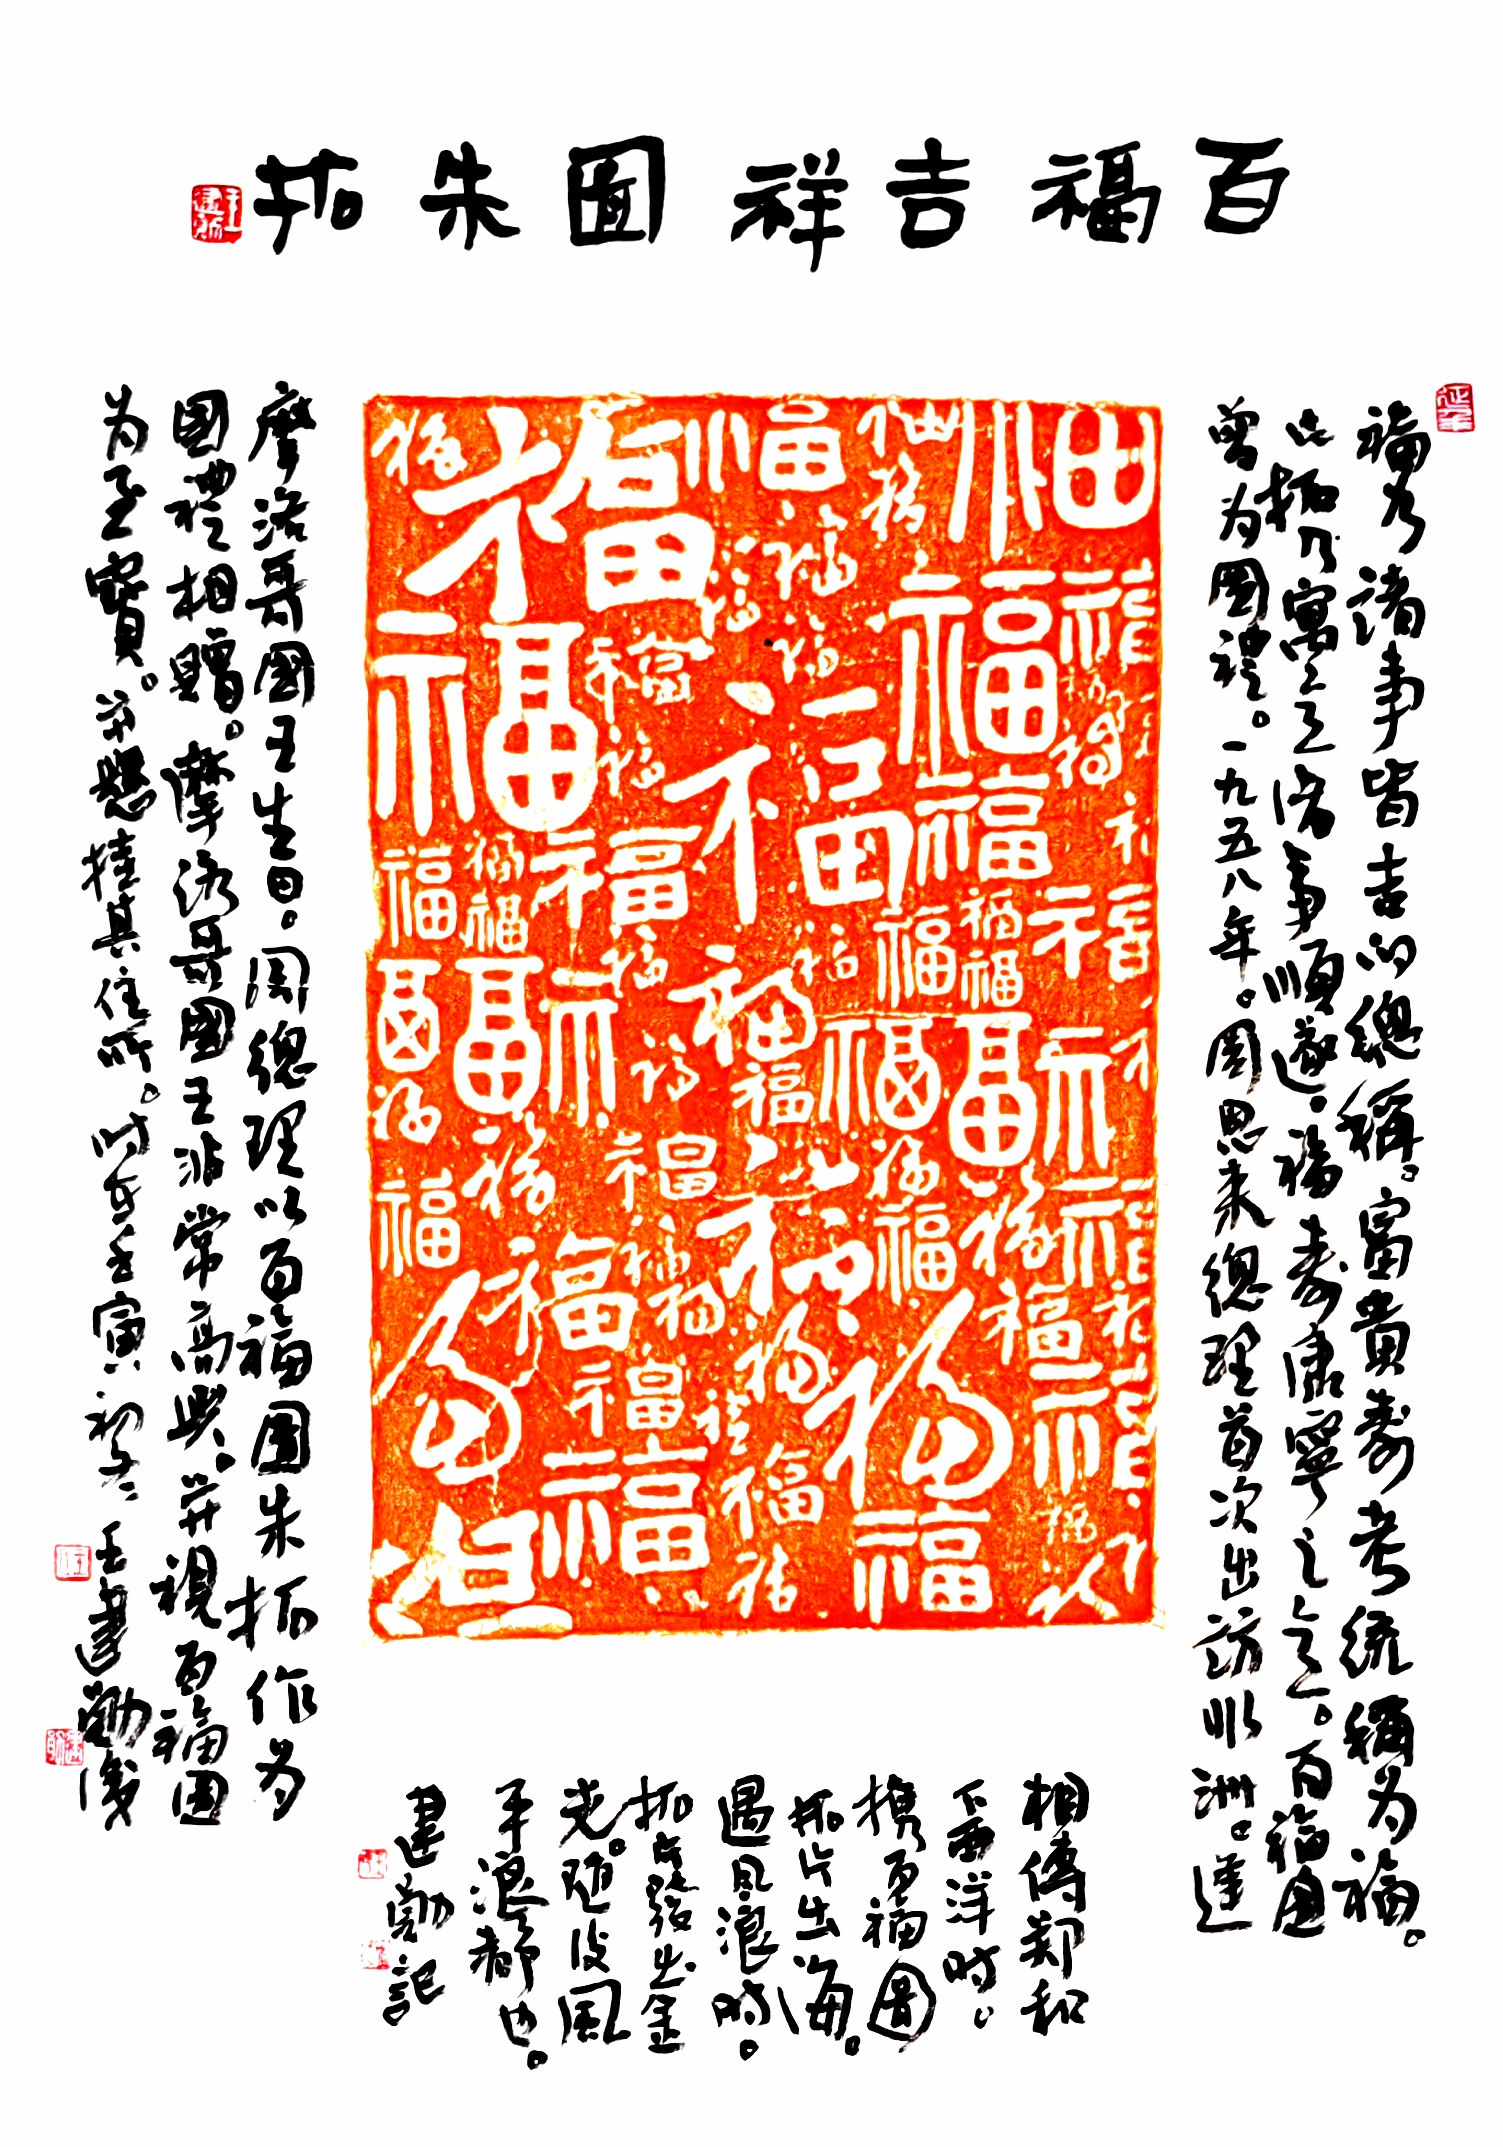 百福吉祥圖朱拓
福乃諸事皆吉的總稱。富貴壽考統稱為福。
此拓乃寓意諸事順遂。福壽康寧之意。百福圖
曾为國禮。一九五八年。周恩来總理首次出訪非洲。逢
摩洛哥國王生日。周總理以百福圖朱拓作为
國禮相贈。摩洛哥國王非常高興。并視百福圖
为至寶。并懸挂其住所。时在壬寅初冬王建勛識
相傳鄭和
下西洋时。
携百福圖
拓片出海。
遇風浪时。
拓片發出金
光。随後風
平浪静也。
建勛記